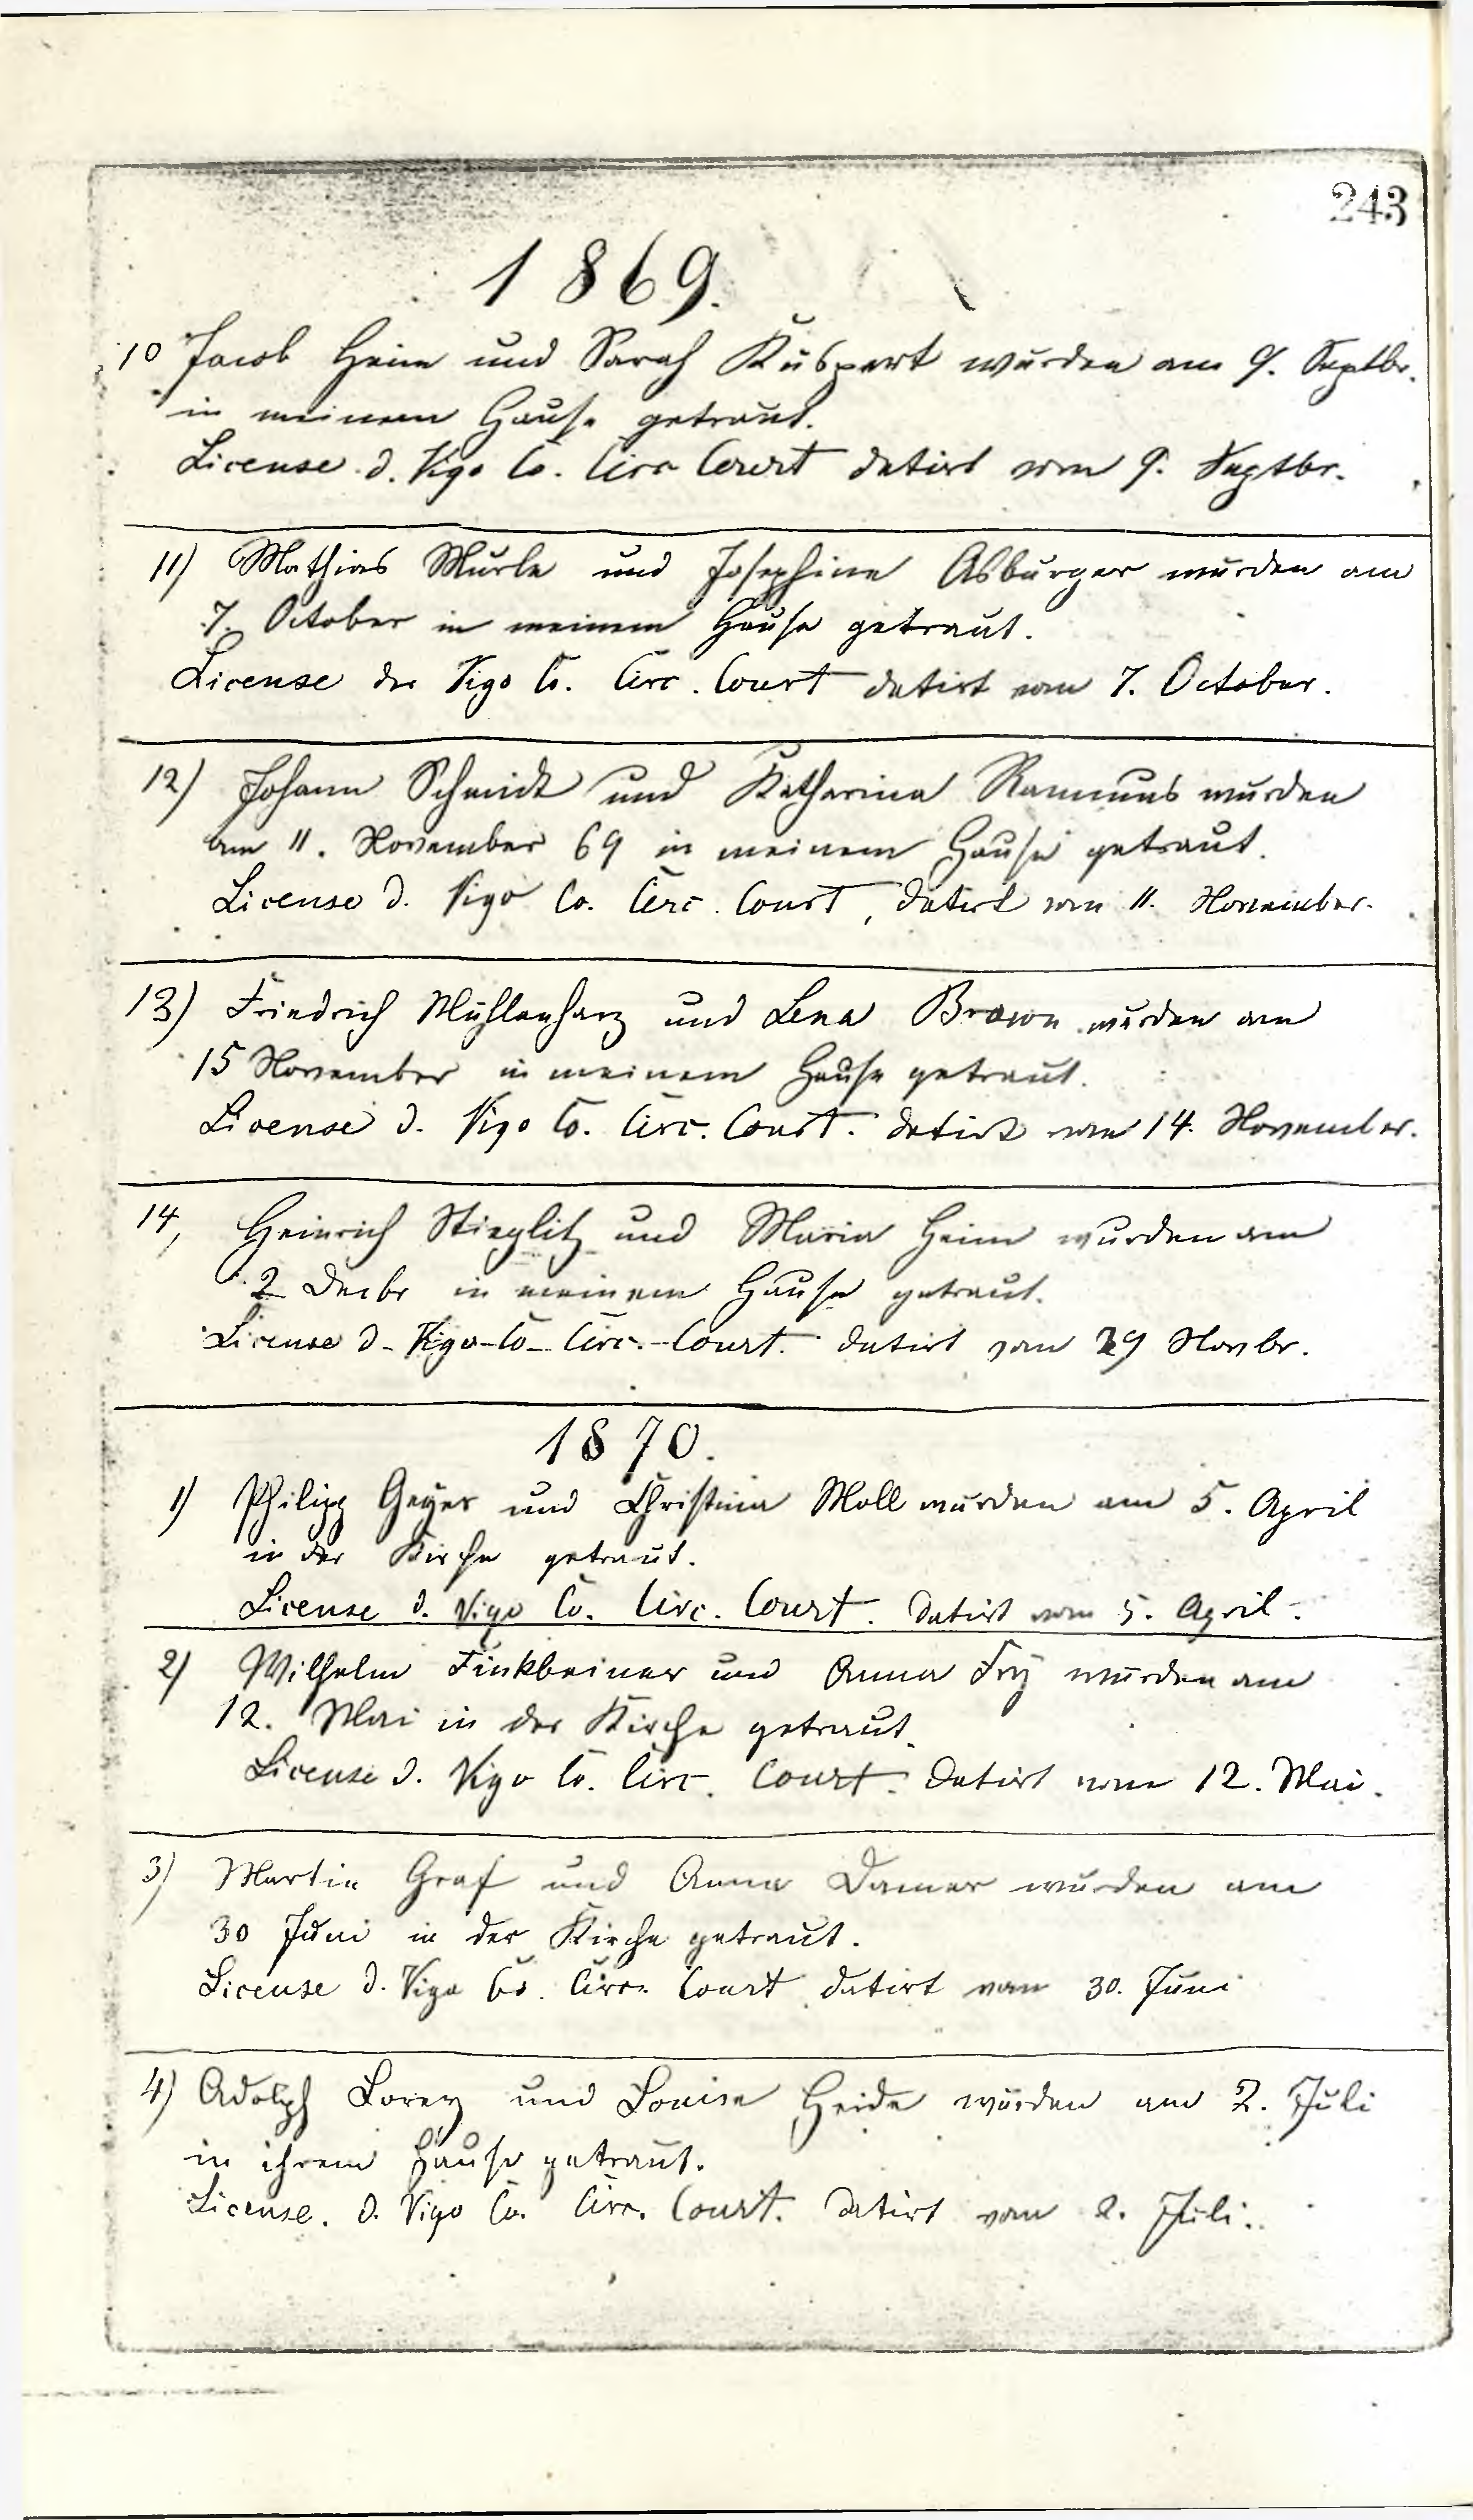 243
1869.
10 Jacob Heim und Sarah Küspert wurden am 9. Septbr.
in meinem Hause getraut.
License d. Vigo Co. Circ Court datirt vom 9. Septbr.
11) Mathias Murle und Josephine Asburger wurden am
7. October in meinem Hause getraut.
License der Vigo Co. Circ. Court datirt vom 7. October.
12) Johann Schmidt und Katharina Rammus wurden
am 11. November 69 in meinem Hause getraut.
License d. Vigo Co. Circ. Court, datirt vom 11. November.
13) Friedrich Mühlenharz und Lena Brown wurden am
15 November in meinem Hause getraut.
License d. Vigo Co. Circ. Court. datirt vom 14. November.
14, Heinrich Stieglitz und Maria Heim wurden am
2 Decbr in meinem Hause getraut.
License d. Vigo-Co- Circ.-Court. datirt vom 29 Novbr.
1870.
1) Philipp Geyer und Christina Moll wurden am 5. April
in der Kirche getraut.
License d. Vigo Co. Circ. Court. datirt vom 5. April.
2) Wilhelm Finkbeiner und Anna Fry wurden am
12. Mai in der Kirche getraut.
License d. Vigo Co. Circ. Court. datirt vom 12. Mai.
3) Martin Graf und Anna Damer wurden am
30 Juni in der Kirche getraut.
License d. Vigo Co. Circ. Court datirt vom 30. Juni
4) Adolph Lorey und Louise Heide wurden am 2. Juli
in ihrem Hause getraut.
License. d. Vigo Co. Circ. Court. datirt vom 2. Juli.